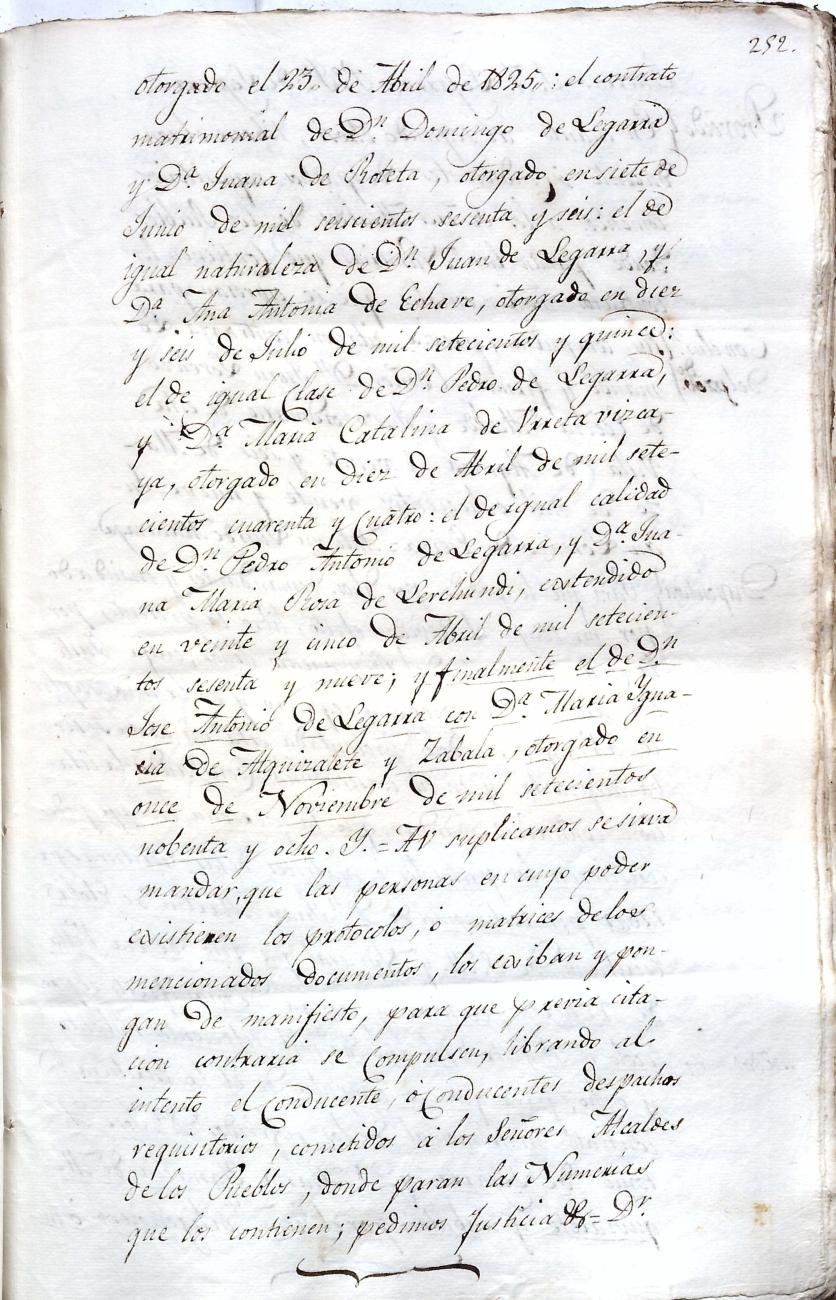 252.
otorgado el 23,, de Abril de 1825,,: el contrato
matrimonial de Dn Domingo de Legarra
y Da. Juana de Roteta, otorgado en siete de
Junio de mil seiscientos sesenta y seis: el de
igual naturaleza de Dn Juan de Legarra, y
Da Ana Antonia de Echave, otorgado en diez
y seis de Julio de mil setecientos y quince:
el de igual Clase de Dn Pedro de Legarra,
y Da Maria Catalina de Vrreta vizca-
ya, otorgado en diez de Abril de mil sete-
cientos cuarenta y Cuatro: el de igual calidad
de Dn Pedro Antonio de Legarra, y Da. Jua-
na Maria Rosa de Lerchundi, extendido
en veinte y cinco de Abril de mil setecien-
tos sesenta y nueve; y finalmente el de Dn
Jose Antonio de Legarra con Da Maria Ygna-
cia de Alquizalete y Zabala, otorgado en
once de Noviembre de mil setecientos
nobenta y ocho. Y. = AV suplicamos se sirva
mandar, que las personas en cuyo poder
existieren los protocolos, ó matrices de los
mencionados documentos, los exiban y pon-
gan de manifiesto, para que previa cita-
cion contraria se Compulsen, librando al
intento el Conducente, ó Conducentes despachos
requisitorios, cometidos á los Señores Alcaldes
de los Pueblos, donde paran las Numerias
que los contienen; pedimos Justicia &= Dr.